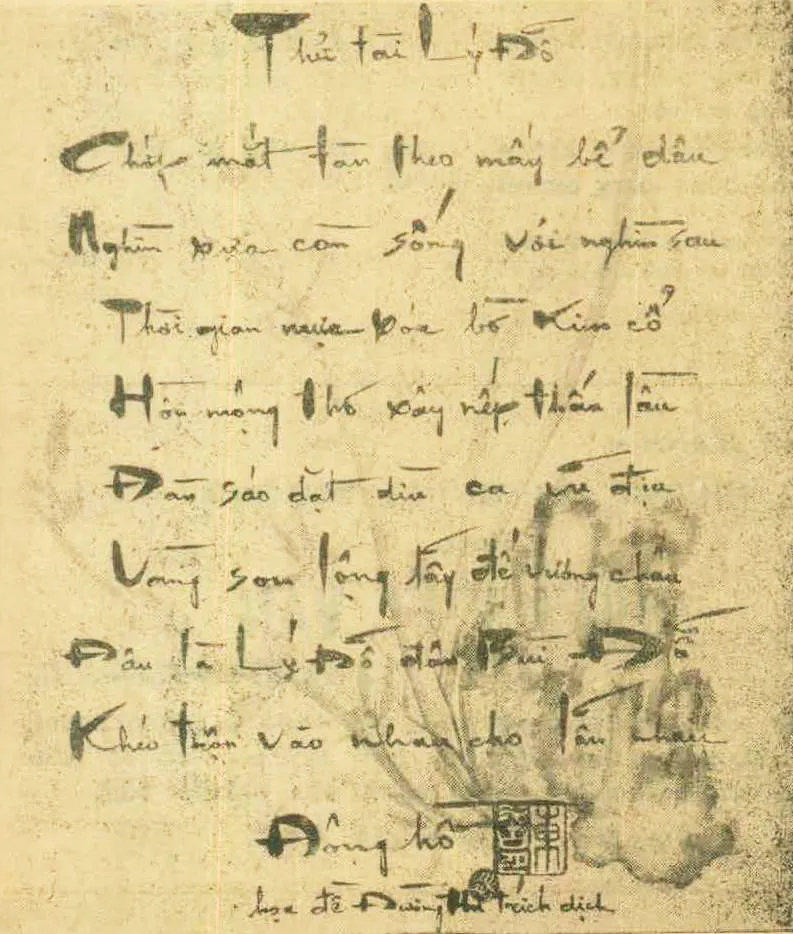 Thử tài Lý Đỗ
Chớp mắt tàn theo mấy bể dâu
Nghìn xưa còn sống với nghìn sau
Thời gian mưa xóa bờ Kim cổ
Hồn mộng thơ xây nếp thẩn lâu
Đàn sáo dặt dìu ca ưu địu
Vàng son lộng lẫy đế vương chầu
Đâu là Lý Đỗ đâu Bùi Đỗ
Khéo trộn vào nhau cho lẫn nhau
Đông hồ
họa đề Đường thi trích dịch